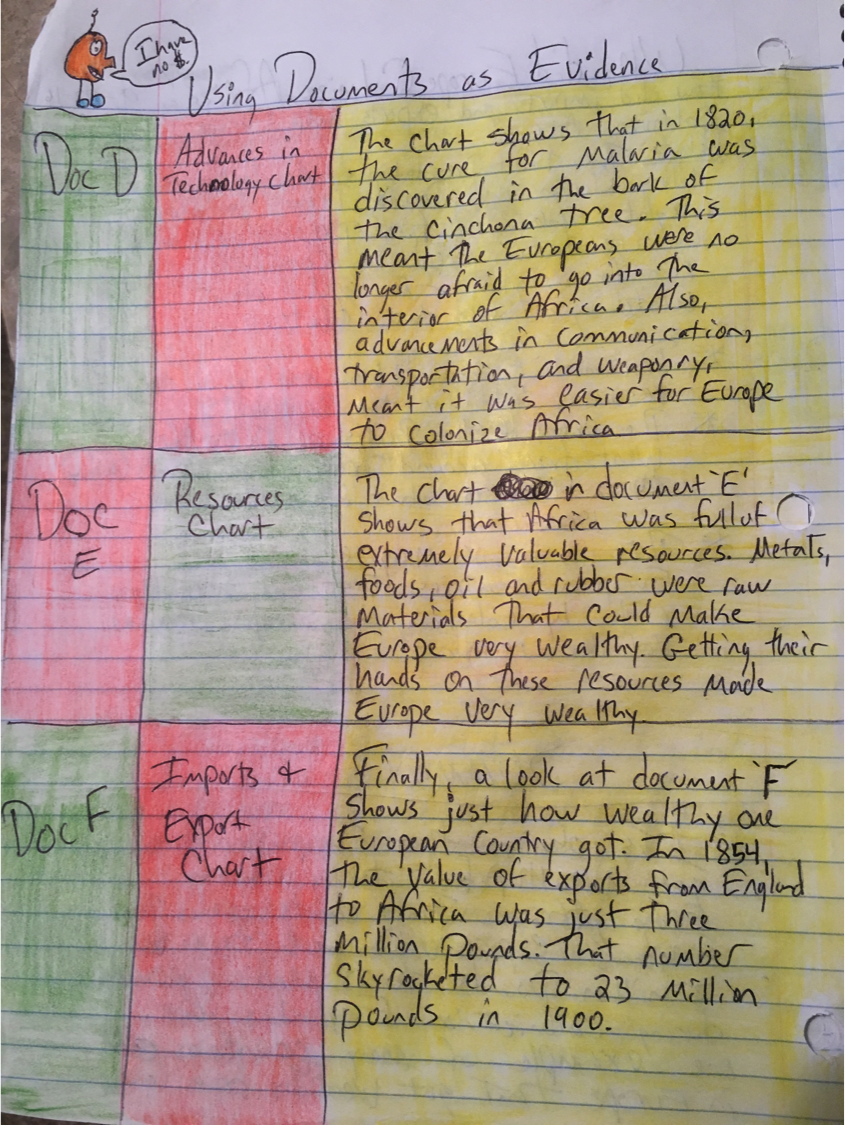 I have
no $.
Using Documents as Evidence
Doc D
Advances in
Technology Chart
The Chart shows that in 1820,
the cure for Malaria was
discovered in the bark of
the cinchona tree. This
meant the Europeans were no
longer afraid to go into the
interior of Africa. Also,
advancements in communication,
transportation, and weaponry,
meant it was easier for Europe
to colonize Africa
Doc
E
Resources
Chart
The Chart in document "E"
shows that Africa was full of
extremely valuable resources. Metals,
foods, oil and rubber were raw
materials that could make
Europe very wealthy. Getting their
hands on these resources made
Europe very wealthy
Doc F
Imports &
Export
Chart
Finally, a look at document "F"
shows just how wealthy one
European Country got. In 1854,
the value of exports from England
to Africa was just three
million pounds. That number
skyrocketed to 23 million
pounds in 1900.